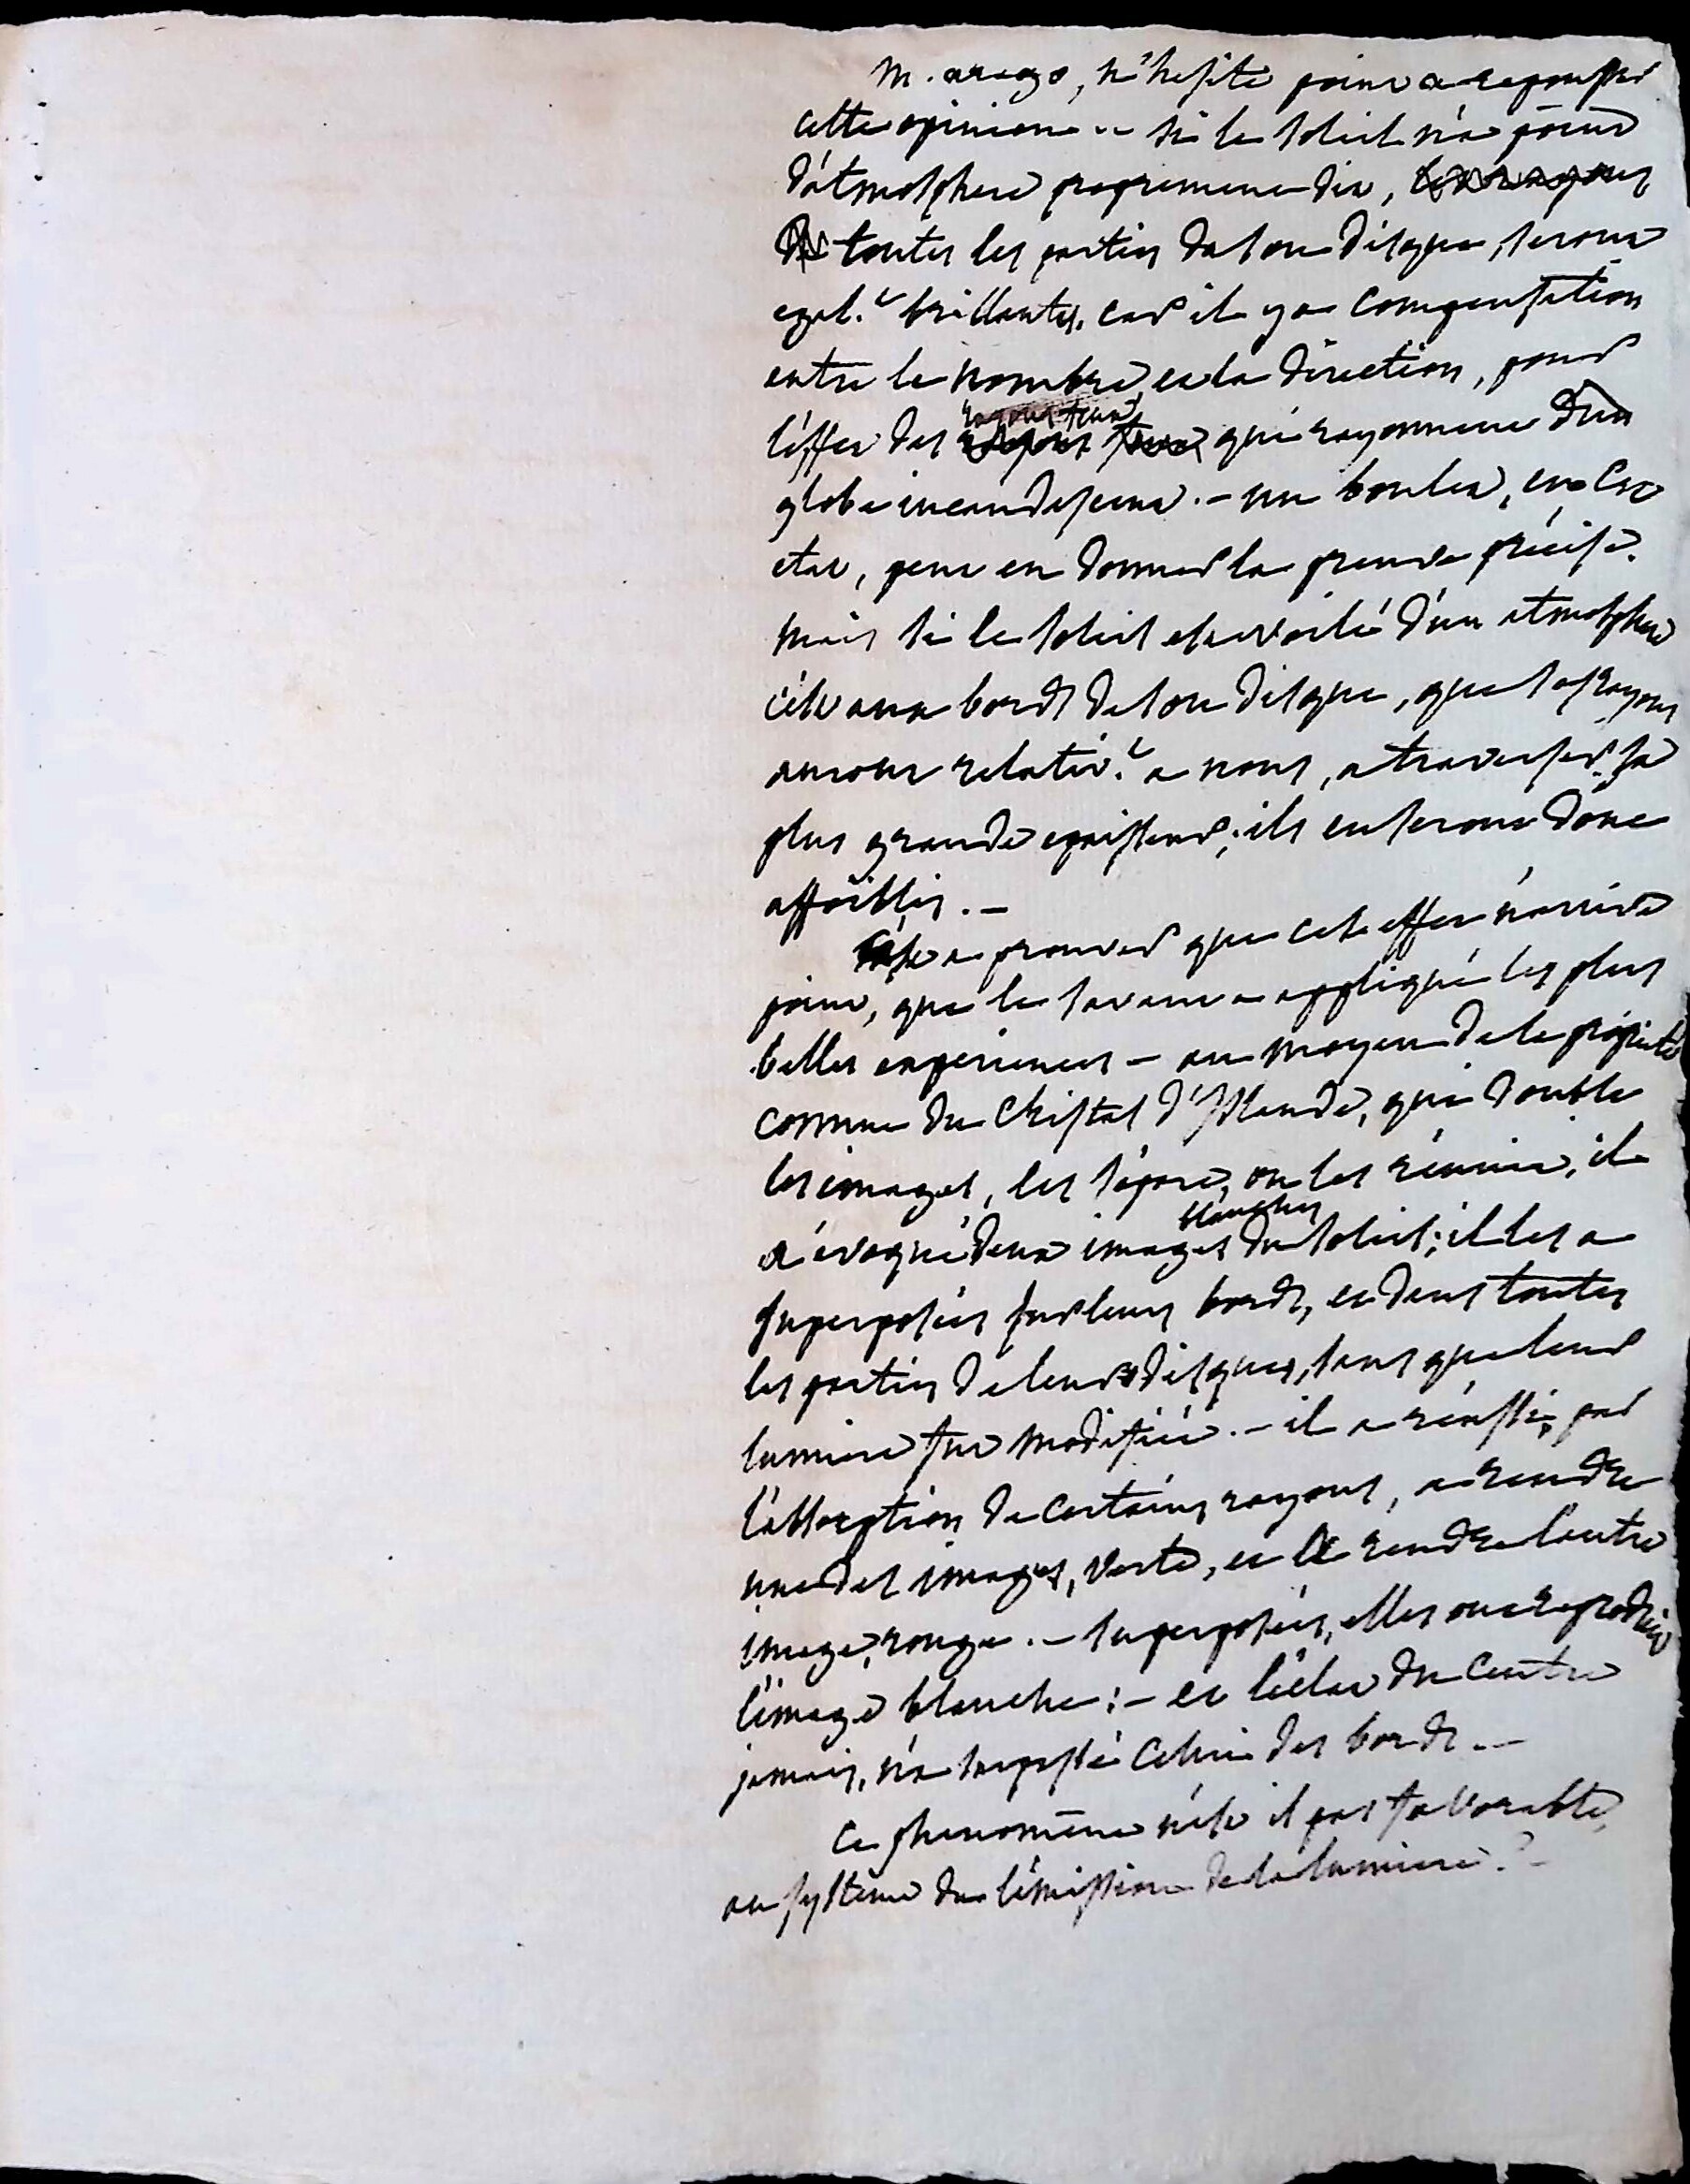 M. arago, n'hesite point a repousser
cette opinion -- si le soleil n'a point
d'atmosphere proprement dit, les rayons
de toutes les parties de son disque, seront
egal.t brillantes, car il y a compensation
entre le nombre et la direction, pour
l'effet des rayons feux qui rayonnent d'un
globe incandescent. - un boulet, en cet
etat, peut en donner la preuve précise.
mais si le soleil est voilé d'un atmosphere
c'est aux bords de son disque, que ses rayons
auront relativ.t a nous, a traverser sa
plus grande epaisseur; ils en seront donc
affoiblis. -
C'est a prouver que cet effet n'arrive
point, que le savant a appliqué les plus
belles experiences - au moyen de la propriété
connue du Christal d'Islande, qui double
les images, les sépare, ou les réunit, il
a évoqué deux images blanches du soleil; il les a
superposées sur leurs bords, et dans toutes
les parties de leurs disques, sans que leur
lumiere fut modifiée. - il a réussi, par
l'absorption de certains rayons, a rendre
une des images, verte, et a rendre l'autre
image, rouge. - superposées, elles ont reproduit
l'image blanche: - et l'éclat du centre
jamais, n'a surpassé celui des bords. -
Ce phenomène n'est il pas favorable,
au systême de l'émission de la lumiere? -